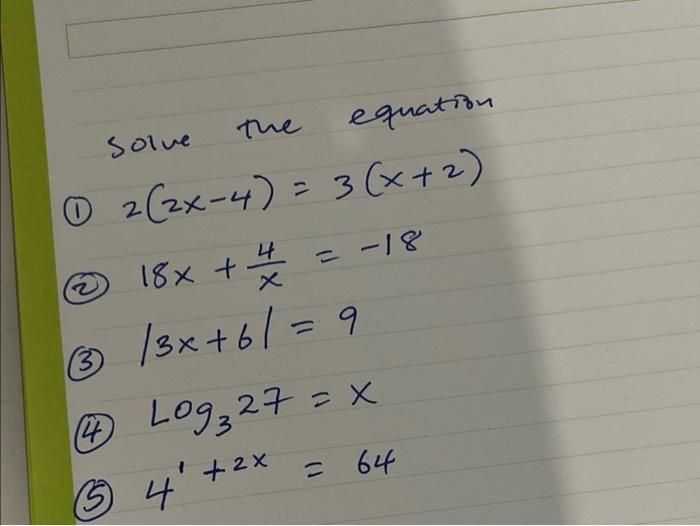 Solve the equation
① 2(2x-4) = 3(x+2)
② 18x + 4/x = -18
③ |3x+6| = 9
④ Log₃27 = x
⑤ 4¹⁺²ˣ = 64